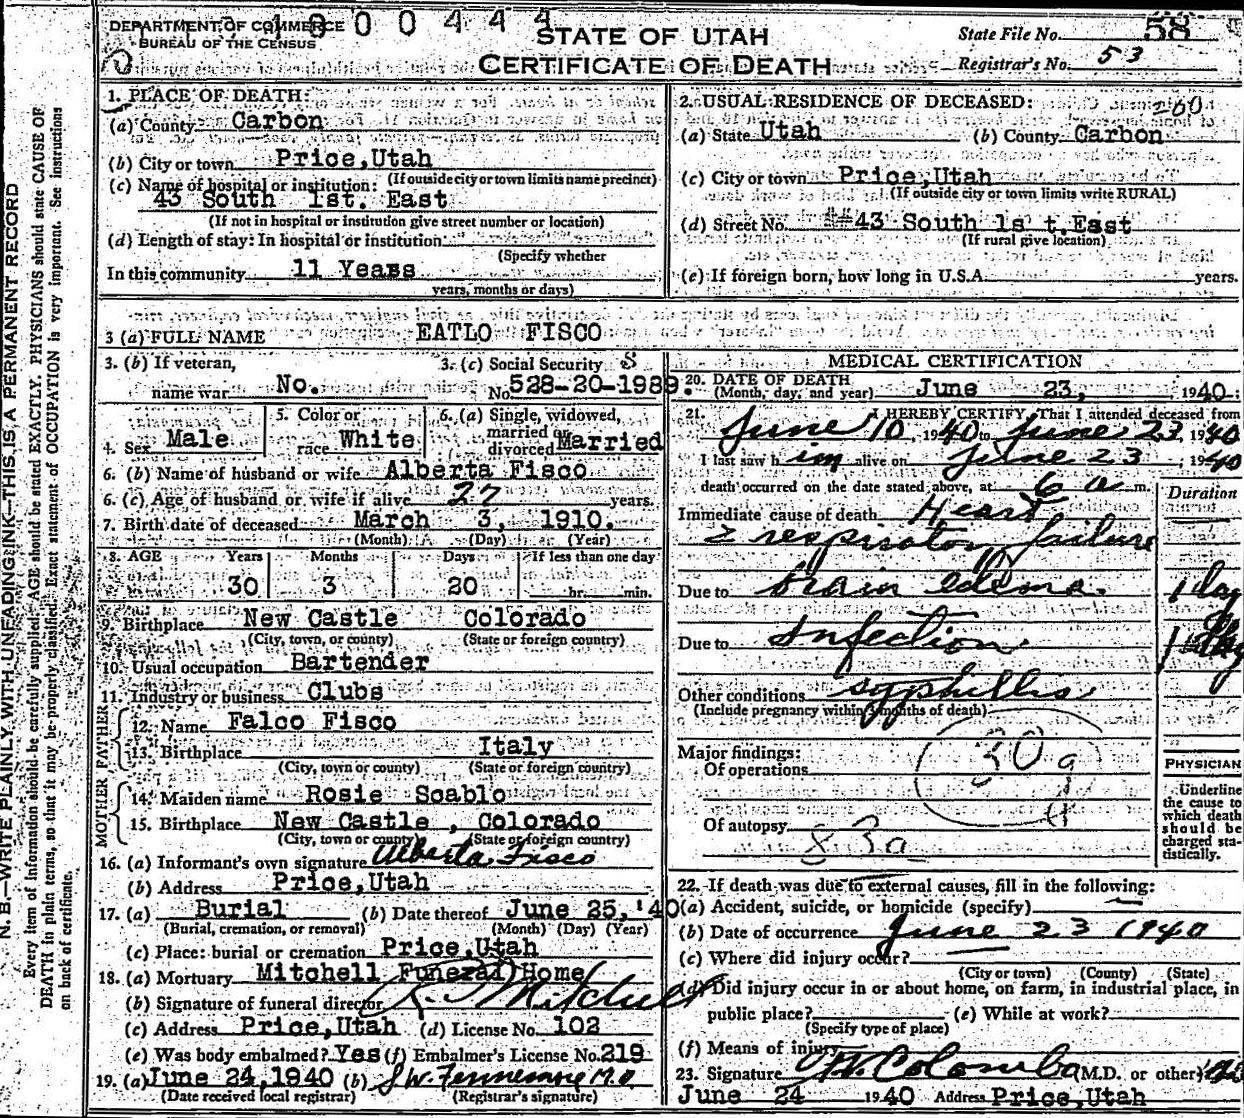 N. B.—WRITE PLAINLY, WITH UNFADING INK—THIS IS A PERMANENT RECORD
Every item of information should be carefully supplied. AGE should be stated EXACTLY. PHYSICIANS should state CAUSE OF
DEATH in plain terms, so that it may be properly classified. Exact statement of OCCUPATION is very important. See instructions
on back of certificate.
DEPARTMENT OF COMMERCE
BUREAU OF THE CENSUS
STATE OF UTAH
CERTIFICATE OF DEATH
State File No. 58
Registrar's No. 53
1. PLACE OF DEATH:
(a) County Carbon
(b) City or town Price, Utah
(If outside city or town limits name precinct)
(c) Name of hospital or institution:
43 South 1st. East
(If not in hospital or institution give street number or location)
(d) Length of stay: In hospital or institution
(Specify whether
In this community 11 Years
years, months or days)
2. USUAL RESIDENCE OF DECEASED:
(a) State Utah (b) County Carbon
(c) City or town Price, Utah
(If outside city or town limits write RURAL)
(d) Street No. ##43 South 1s t. East
(If rural give location)
(e) If foreign born, how long in U.S.A. years.
3 (a) FULL NAME EATLO FISCO
3. (b) If veteran,
name war No.
3. (c) Social Security
No. 528-20-1989.
4. Sex Male
5. Color or
race White
6. (a) Single, widowed,
married or
divorced Married
6. (b) Name of husband or wife Alberta Fisco
6. (c) Age of husband or wife if alive 27 years.
7. Birth date of deceased March 3, 1910.
(Month) (Day) (Year)
8. AGE Years Months Days If less than one day
30 3 20 hr. min.
9. Birthplace New Castle Colorado
(City, town, or county) (State or foreign country)
10. Usual occupation Bartender
11. Industry or business Clubs
FATHER
12. Name Falco Fisco
13. Birthplace Italy
(City, town or county) (State or foreign country)
MOTHER
14. Maiden name Rosie Scablo
15. Birthplace New Castle, Colorado
(City, town or county) (State or foreign country)
16. (a) Informant's own signature Alberta Fisco
(b) Address Price, Utah
17. (a) Burial (b) Date thereof June 25, '40
(Burial, cremation, or removal) (Month) (Day) (Year)
(c) Place: burial or cremation Price, Utah
18. (a) Mortuary Mitchell Funeral Home
(b) Signature of funeral director Mitchell
(c) Address Price, Utah (d) License No. 102
(e) Was body embalmed? Yes (f) Embalmer's License No. 219
19. (a) June 24, 1940 (b)
(Date received local registrar) (Registrar's signature)
MEDICAL CERTIFICATION
20. DATE OF DEATH
(Month, day, and year) June 23, 1940
21. I HEREBY CERTIFY, That I attended deceased from
June 10, 1940 to June 23, 1940
I last saw him alive on June 23, 1940
death occurred on the date stated above, at 6 a m.
Duration
Immediate cause of death Heart
& respiratory failure
Due to brain edema. 1 day
Due to Infection
Other conditions syphillis
(Include pregnancy within 3 months of death)
30g
Major findings:
Of operations
Of autopsy
83a
PHYSICIAN
Underline
the cause to
which death
should be
charged sta-
tistically.
22. If death was due to external causes, fill in the following:
(a) Accident, suicide, or homicide (specify)
(b) Date of occurrence June 23 1940
(c) Where did injury occur?
(City or town) (County) (State)
(d) Did injury occur in or about home, on farm, in industrial place, in
public place? (e) While at work?
(Specify type of place)
(f) Means of injury
23. Signature Colombo (M.D. or other)
June 24 1940 Address Price, Utah